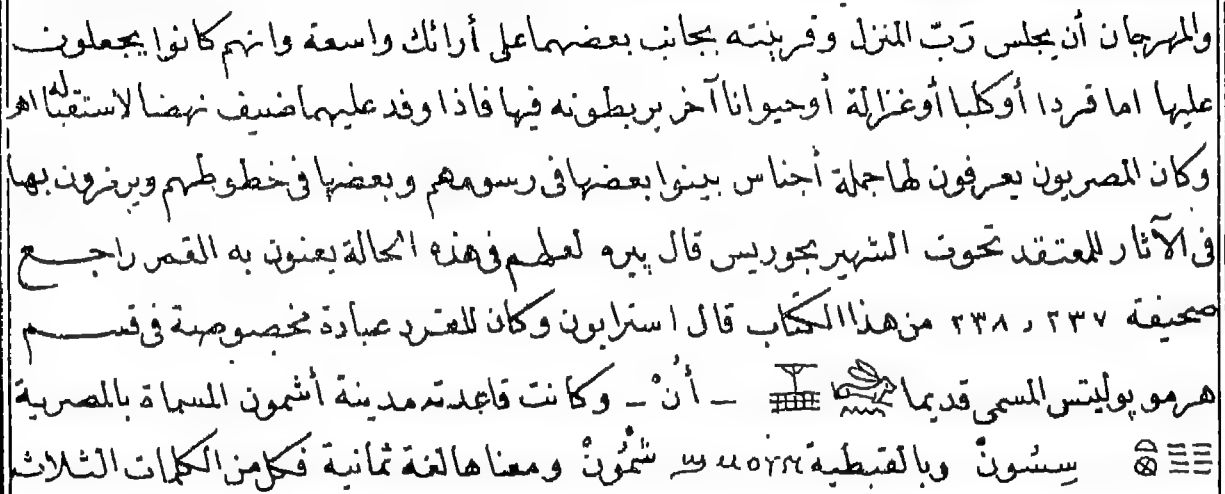 والمهرجان أن يجلس رَبّ المنزل وقرينته بجانب بعضهما على أرائك واسعة وانهم كانوا يجعلون
عليها اما قردا أوكلبا أوغزالة أوحيوانا آخر يربطونه فيها فاذا وفد عليهما ضيف نهضا لاستقباله اه
وكان المصريون يعرفون لها جملة أجناس بينوا بعضها فى رسومهم وبعضها فى خطوطهم ويرمزون بها
فى الآثار للمعتقد تحوت الشهير بجوريس قال پيره لعلهم فى هذه الحالة يعنون به القمر راجع
صحيفة ٢٣٧ و ٢٣٨ من هذا الكتاب قال استرابون وكان للقرد عبادة مخصوصة فى قسم
هرمو پوليتس المسمى قديما 𓃹𓈖𓈇 ـ أُنْ ـ وكانت قاعدته مدينة أشمون المسماة بالمصرية
سِسُونْ وبالقبطية ϣⲙⲟⲩⲛ شْمُونْ ومعناها لغة ثمانية فكل من الكلمات الثلاثة